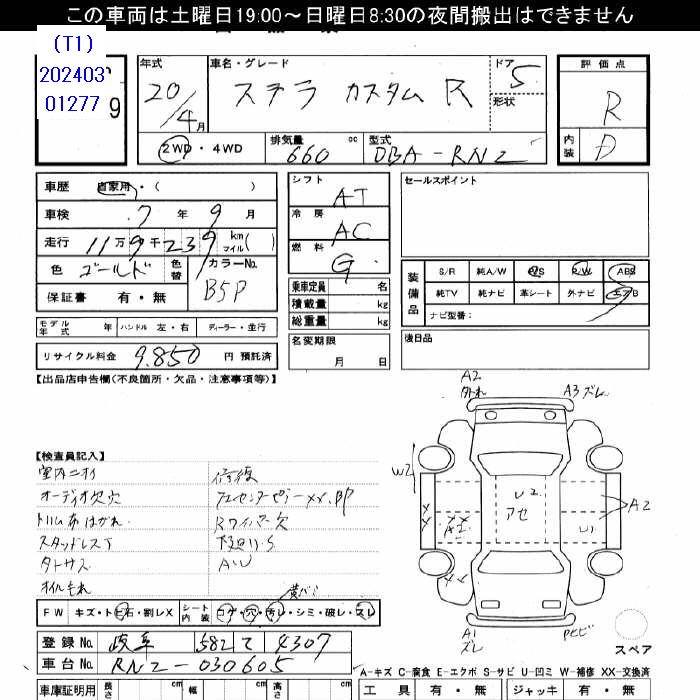 この車両は土曜日19:00～日曜日8:30の夜間搬出はできません
(T1)
202403
01277
9
年式 車名・グレード ドア
20/4月 ステラ カスタム R 5
形状
評価点
R
内装 D
2WD・4WD 排気量 660 cc 型式 DBA-RN2
車歴 自家用・( )
車検 7年 9月
走行 11万9千239 km マイル( )
色 ゴールド 色替 カラーNo. B5P
保証書 有・無
モデル年式 年 ハンドル 左・右 ディーラー・並行
リサイクル料金 9,850 円 預託済
シフト AT
冷房 AC
燃料 G
乗車定員 名
積載量 kg
総重量 kg
名変期限
月 日
セールスポイント
装備品 S/R 純A/W P/S P/W ABS
純TV 純ナビ 革シート 外ナビ エアB
ナビ型番:
後日品
【出品店申告欄(不良箇所・欠品・注意事項等)】
【検査員記入】
室内ニオイ 修復
オーディオ欠穴
トリム布はがれ Rワイパー欠
スタッドレス下
タトサス A/W
オイルもれ
FW キズ・トビ石・割レX シート内装 コゲ・穴・汚レ・シミ・破レ・スレ
登録No. 岐阜 582 て 4307
車台No. RN2-030605
車庫証明用 長さ cm 幅 cm 高さ cm
A2
外れ
A3 ズレ
W2
A2
U2
アセ
A2
U1
A1
ズレ
スペア
A-キズ C-腐食 E-エクボ S-サビ U-凹ミ W-補修 XX-交換済
工具 有・無 ジャッキ 有・無